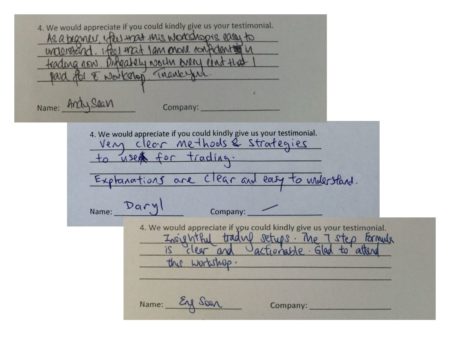 4. We would appreciate if you could kindly give us your testimonial.
As a beginner, I feel that this workshop is easy to
understand. I feel that I am more confident in
trading now. Definately worth every cent that I
paid for workshop Thankful.
Name: Andy Sean Company:
4. We would appreciate if you could kindly give us your testimonial.
Very clear methods & strategies
to use for trading.
Explanations are clear and easy to understand.
Name: Daryl Company: —
4. We would appreciate if you could kindly give us your testimonial.
Insightful trading setups. The 7 step formula
is clear and actionable. Glad to attend
this workshop.
Name: Company: